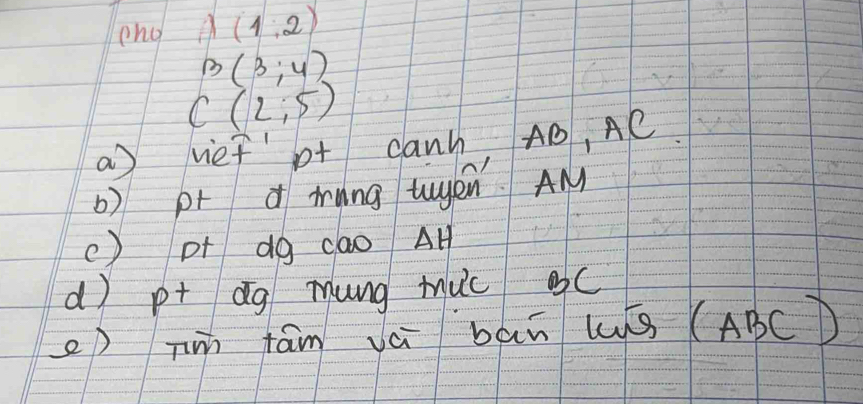 cho A (1;2)
B (3;4)
C (2;5)
a) viết pt cạnh AB, AC.
b) pt đ trung tuyến AM
c) pt đg cao AH
d) pt đg trung trực BC
e) Tìm tâm và bán kính (ABC)